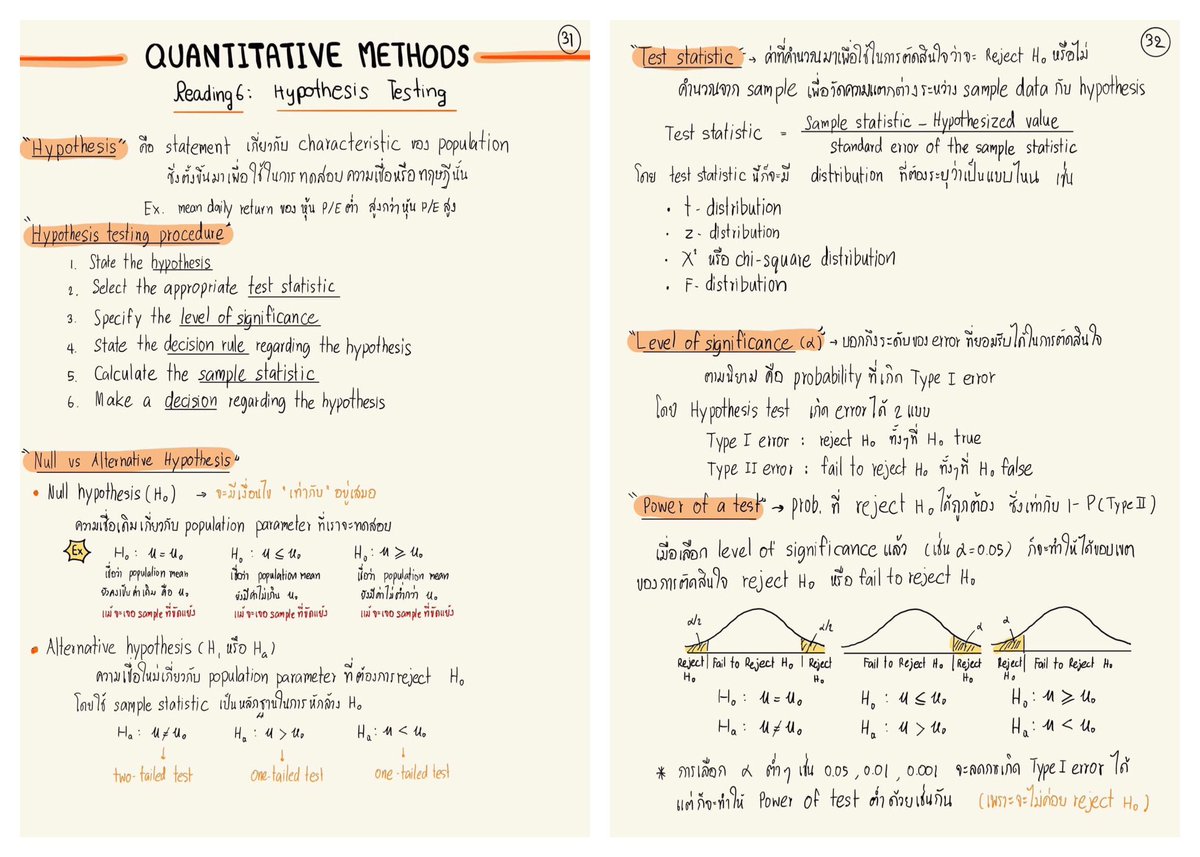 31
QUANTITATIVE METHODS
Reading 6: Hypothesis Testing
"Hypothesis" คือ statement เกี่ยวกับ characteristic ของ population
ซึ่งตั้งขึ้นมาเพื่อใช้ในการ ทดสอบ ความเชื่อหรือทฤษฎีนั้น
Ex. mean daily return ของ หุ้น P/E ต่ำ สูงกว่าหุ้น P/E สูง
"Hypothesis testing procedure"
1. State the hypothesis
2. Select the appropriate test statistic
3. Specify the level of significance
4. State the decision rule regarding the hypothesis
5. Calculate the sample statistic
6. Make a decision regarding the hypothesis
"Null vs Alternative Hypothesis"
• Null hypothesis (H₀) → จะมีเงื่อนไข "เท่ากับ" อยู่เสมอ
ความเชื่อเดิมเกี่ยวกับ population parameter ที่เราจะทดสอบ
Ex H₀ : μ = μ₀ H₀ : μ ≤ μ₀ H₀ : μ ≥ μ₀
เชื่อว่า population mean เชื่อว่า population mean เชื่อว่า population mean
ยังคงเป็นค่าเดิม คือ μ₀ ยังมีค่าไม่เกิน μ₀ ยังมีค่าไม่ต่ำกว่า μ₀
แม้จะเจอ sample ที่ขัดแย้ง แม้จะเจอ sample ที่ขัดแย้ง แม้จะเจอ sample ที่ขัดแย้ง
• Alternative hypothesis (H₁ หรือ Hₐ)
ความเชื่อใหม่เกี่ยวกับ population parameter ที่ต้องการ reject H₀
โดยใช้ sample statistic เป็นหลักฐานในการหักล้าง H₀
Hₐ : μ ≠ μ₀ Hₐ : μ > μ₀ Hₐ : μ < μ₀
↓ ↓ ↓
two-tailed test one-tailed test one-tailed test
32
"Test statistic" → ค่าที่คำนวณมาเพื่อใช้ในการตัดสินใจว่าจะ Reject H₀ หรือไม่
คำนวณจาก sample เพื่อวัดความแตกต่างระหว่าง sample data กับ hypothesis
Test statistic = Sample statistic – Hypothesized value
standard error of the sample statistic
โดย test statistic นี้ก็จะมี distribution ที่ต้องระบุว่าเป็นแบบไหน เช่น
• t - distribution
• z - distribution
• χ² หรือ chi-square distribution
• F - distribution
"Level of significance (α)" → บอกถึงระดับของ error ที่ยอมรับได้ในการตัดสินใจ
ตามนิยาม คือ probability ที่เกิด Type I error
โดย Hypothesis test เกิด error ได้ 2 แบบ
Type I error : reject H₀ ทั้งๆที่ H₀ true
Type II error : fail to reject H₀ ทั้งๆที่ H₀ false
"Power of a test" → prob. ที่ reject H₀ ได้ถูกต้อง ซึ่งเท่ากับ 1 - P(Type II)
เมื่อเลือก level of significance แล้ว (เช่น α = 0.05) ก็จะทำให้ได้ขอบเขต
ของการตัดสินใจ reject H₀ หรือ fail to reject H₀
α/2 α/2 α α
Reject H₀ Fail to Reject H₀ Reject H₀ Fail to Reject H₀ Reject H₀ Reject H₀ Fail to Reject H₀
H₀ : μ = μ₀ H₀ : μ ≤ μ₀ H₀ : μ ≥ μ₀
Hₐ : μ ≠ μ₀ Hₐ : μ > μ₀ Hₐ : μ < μ₀
* การเลือก α ต่ำๆ เช่น 0.05 , 0.01 , 0.001 จะลดการเกิด Type I error ได้
แต่ก็จะทำให้ Power of test ต่ำด้วยเช่นกัน (เพราะจะไม่ค่อย reject H₀)